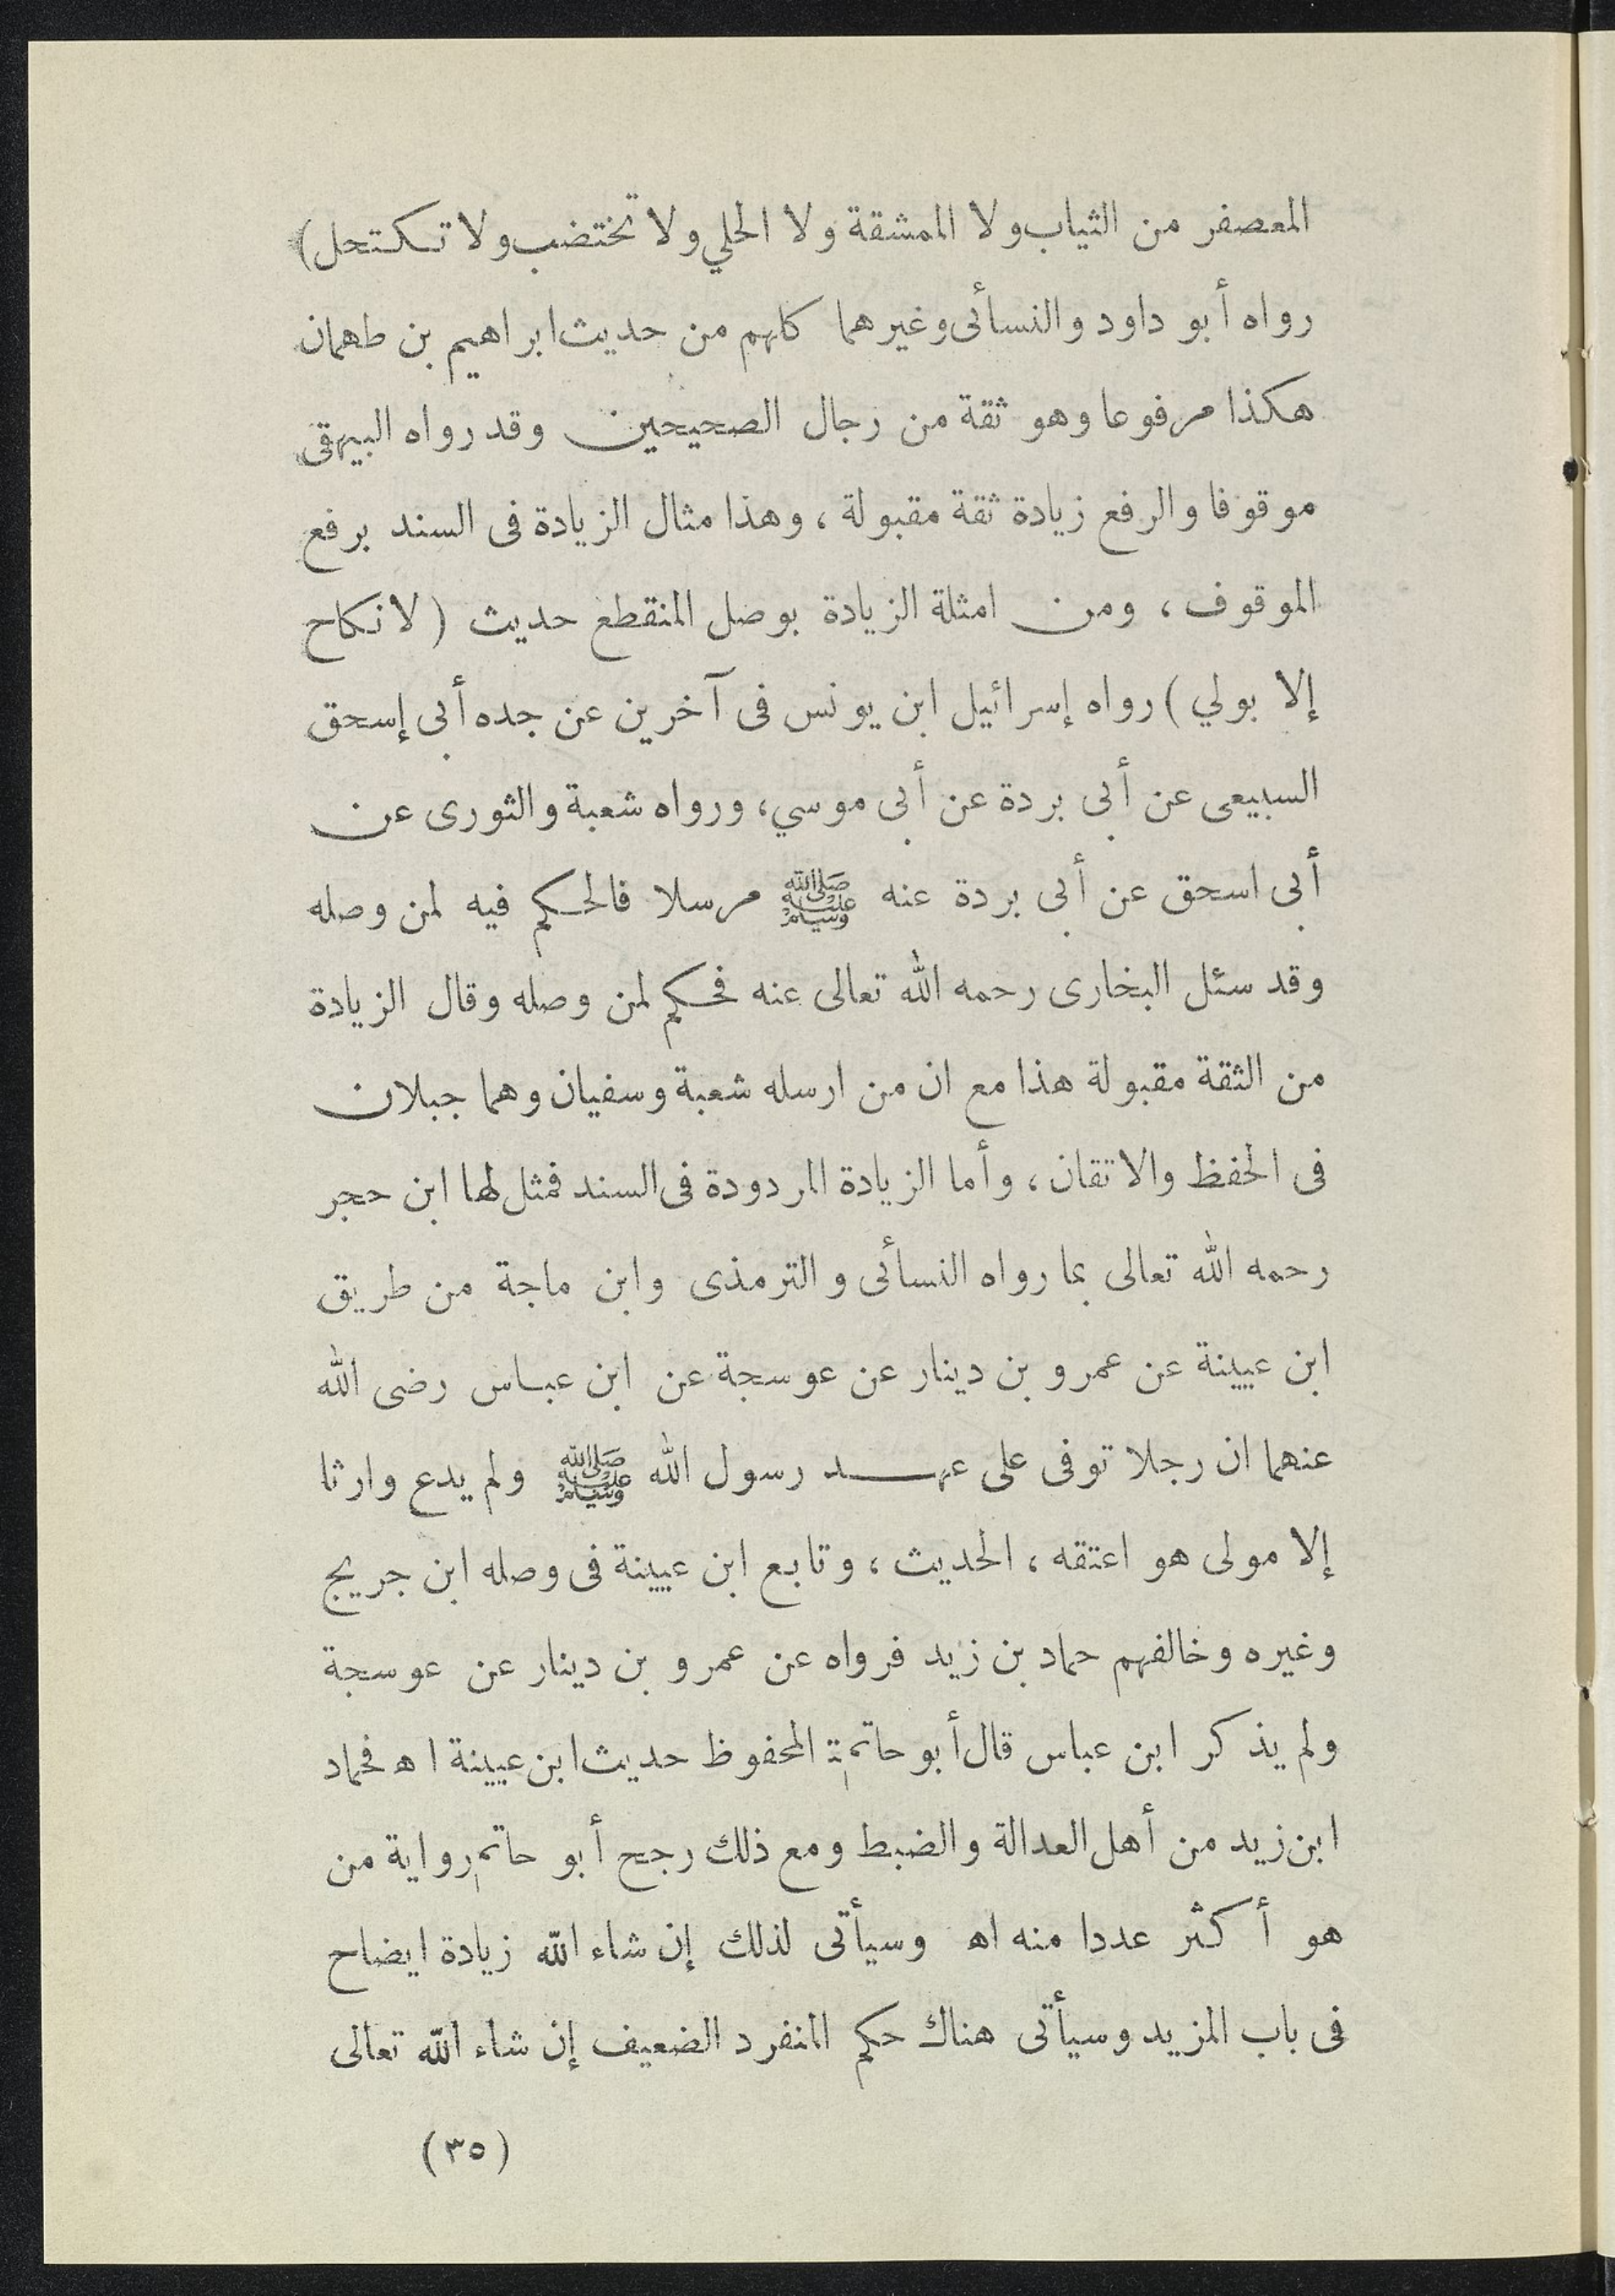 المعصفر من الثياب ولا الممشقة ولا الحلي ولا تختضب ولا تكتحل)
رواه أبو داود والنسائى وغيرهما كلهم من حديث ابراهيم بن طهمان
هكذا مرفوعا وهو ثقة من رجال الصحيحين وقد رواه البيهقى
موقوفا والرفع زيادة ثقة مقبولة ، وهذا مثال الزيادة فى السند برفع
الموقوف ، ومن امثلة الزيادة بوصل المنقطع حديث (لا نكاح
إلا بولي) رواه إسرائيل ابن يونس فى آخرين عن جده أبى إسحق
السبيعى عن أبى بردة عن أبى موسي، ورواه شعبة والثورى عن
أبى اسحق عن أبى بردة عنه ﷺ مرسلا فالحكم فيه لمن وصله
وقد سئل البخارى رحمه الله تعالى عنه فحكم لمن وصله وقال الزيادة
من الثقة مقبولة هذا مع ان من ارسله شعبة وسفيان وهما جبلان
فى الحفظ والاتقان ، وأما الزيادة المردودة فى السند فمثل لها ابن حجر
رحمه الله تعالى بما رواه النسائى والترمذى وابن ماجة من طريق
ابن عيينة عن عمرو بن دينار عن عوسجة عن ابن عباس رضى الله
عنهما ان رجلا توفى على عهد رسول الله ﷺ ولم يدع وارثا
إلا مولى هو اعتقه ، الحديث ، وتابع ابن عيينة فى وصله ابن جريج
وغيره وخالفهم حماد بن زيد فرواه عن عمرو بن دينار عن عوسجة
ولم يذكر ابن عباس قال أبو حاتم المحفوظ حديث ابن عيينة اه فحماد
ابن زيد من أهل العدالة والضبط ومع ذلك رجح أبو حاتم رواية من
هو أكثر عددا منه اه وسيأتى لذلك إن شاء الله زيادة ايضاح
فى باب المزيد وسيأتى هناك حكم المنفرد الضعيف إن شاء الله تعالى
(٣٥)